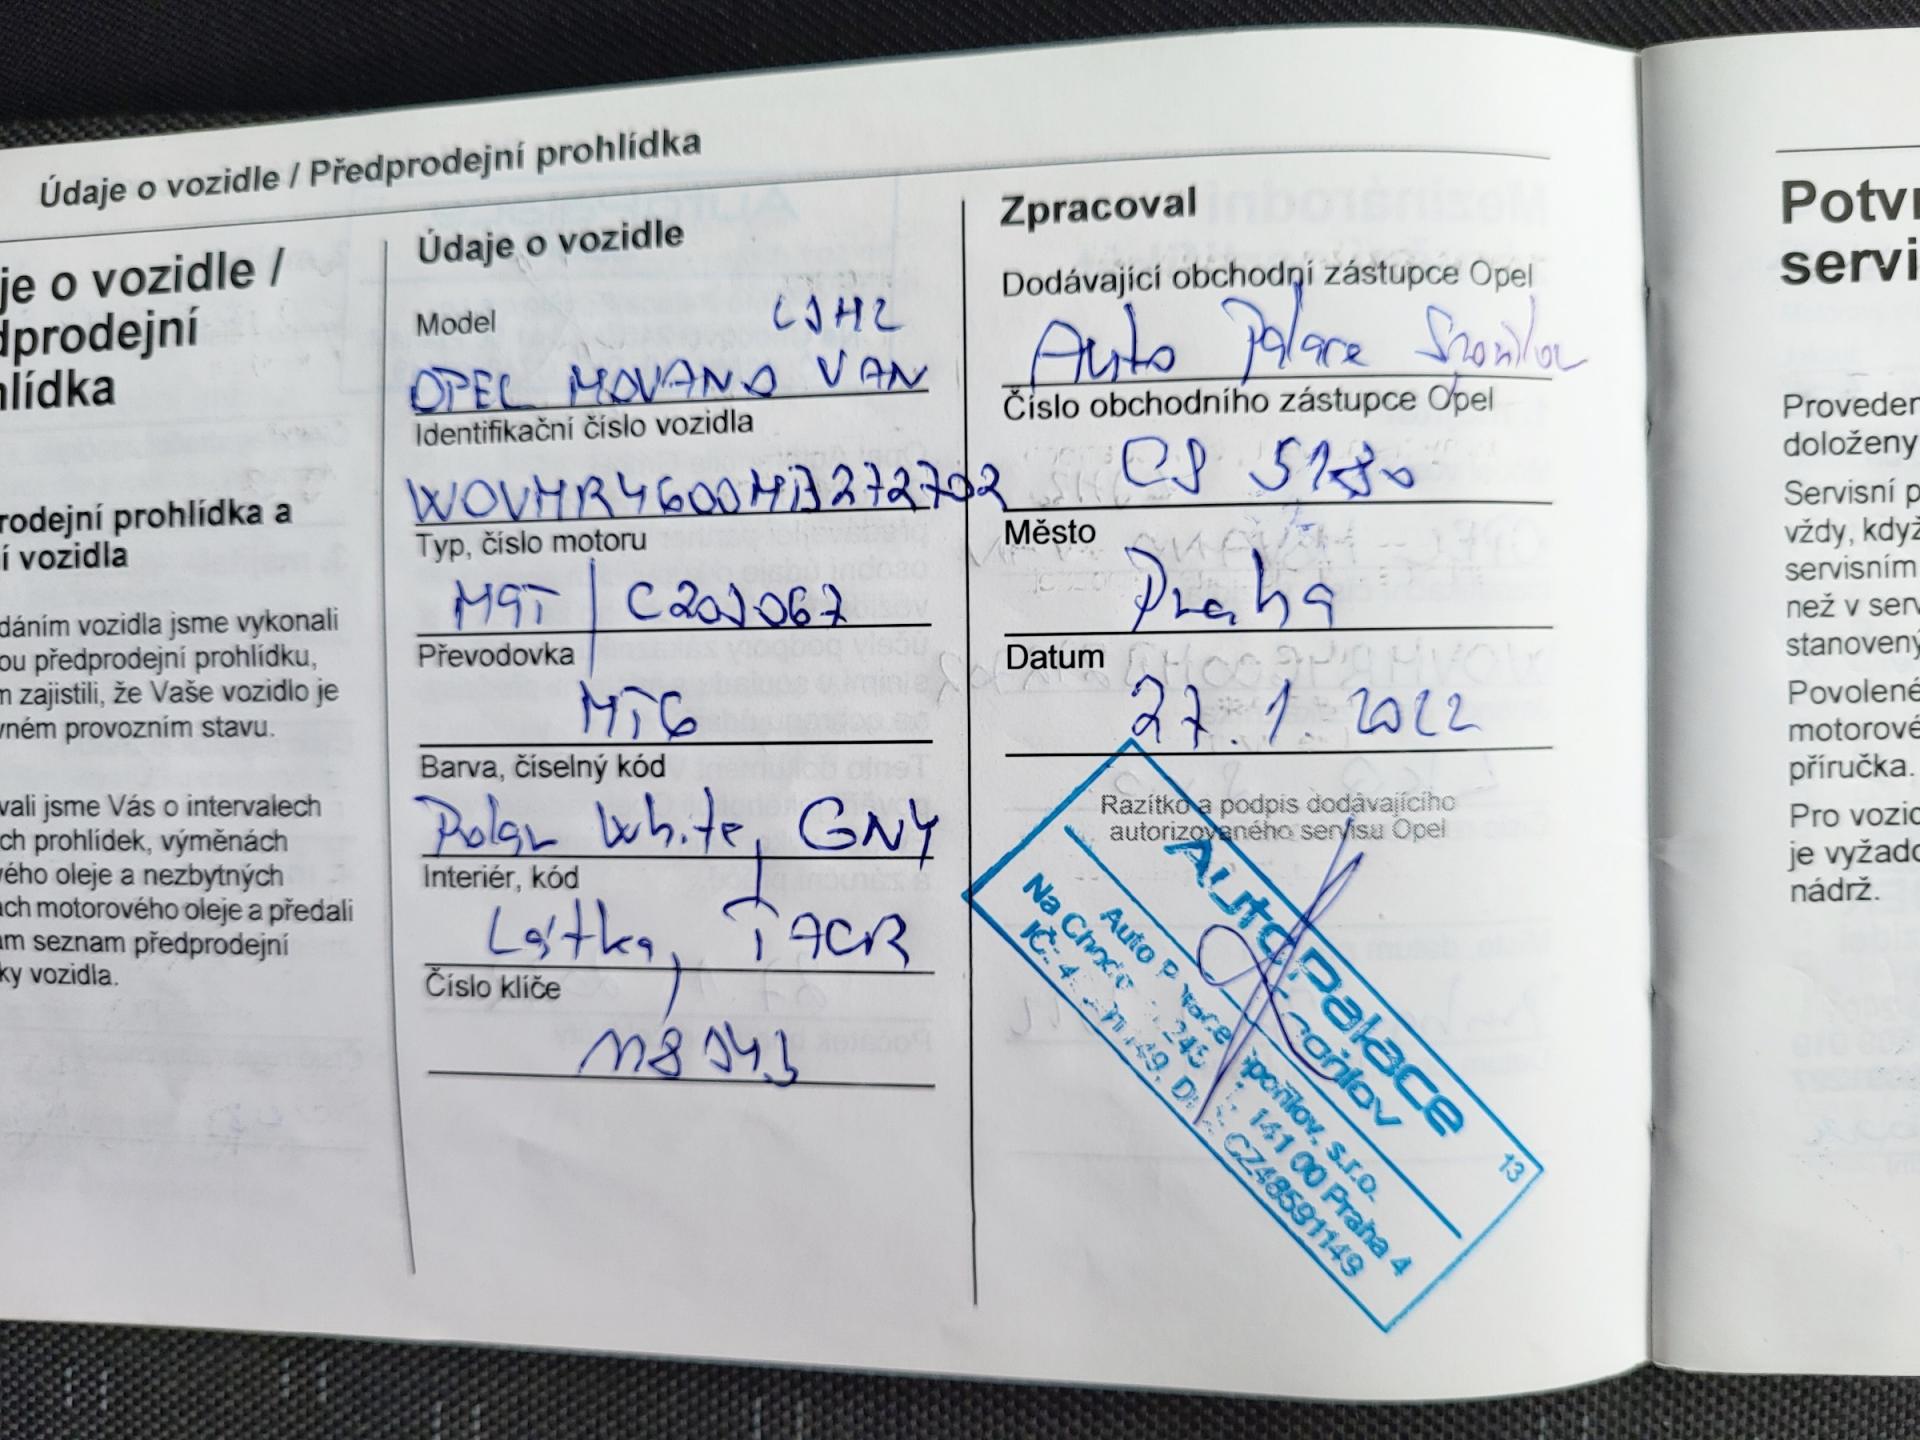 Údaje o vozidle / Předprodejní prohlídka
je o vozidle /
dprodejní
hlídka
rodejní prohlídka a
í vozidla
dáním vozidla jsme vykonali
ou předprodejní prohlídku,
m zajistili, že Vaše vozidlo je
vném provozním stavu.
vali jsme Vás o intervalech
ch prohlídek, výměnách
vého oleje a nezbytných
ach motorového oleje a předali
am seznam předprodejní
ky vozidla.
Údaje o vozidle
Model L3H2
OPEL MOVANO VAN
Identifikační číslo vozidla
W0VMR4600MB272702
Typ, číslo motoru
M9T / C203067
Převodovka
MT6
Barva, číselný kód
Polar White, GNY
Interiér, kód
Látka, TACR
Číslo klíče
Zpracoval
Dodávající obchodní zástupce Opel
Auto Palace Spořilov
Číslo obchodního zástupce Opel
Město
Praha
Datum
27. 1. 2022
Razítko a podpis dodávajícího
autorizovaného servisu Opel
Auto Palace
Spořilov
Auto Palace Spořilov, s.r.o.
141 00 Praha 4
CZ48591149
13
Potvr
servi
Proveden
doloženy
Servisní p
vždy, když
servisním
než v serv
stanovený
Povolené
motorové
příručka.
Pro vozid
je vyžado
nádrž.